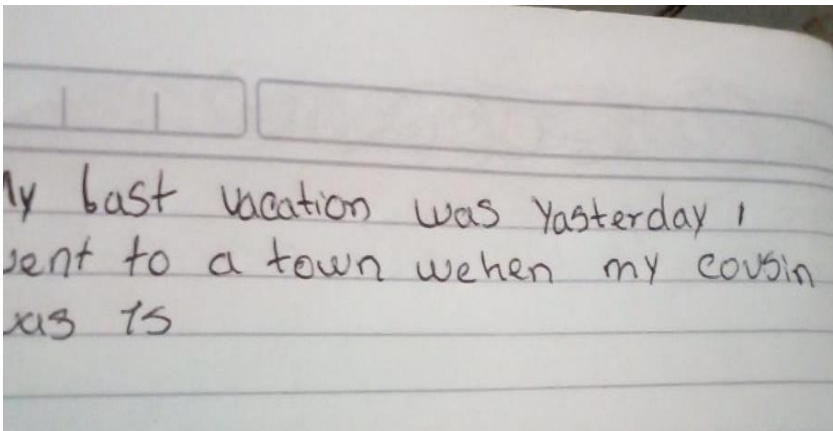 My bast vacation was Yasterday I
went to a town wehen my cousin
was is